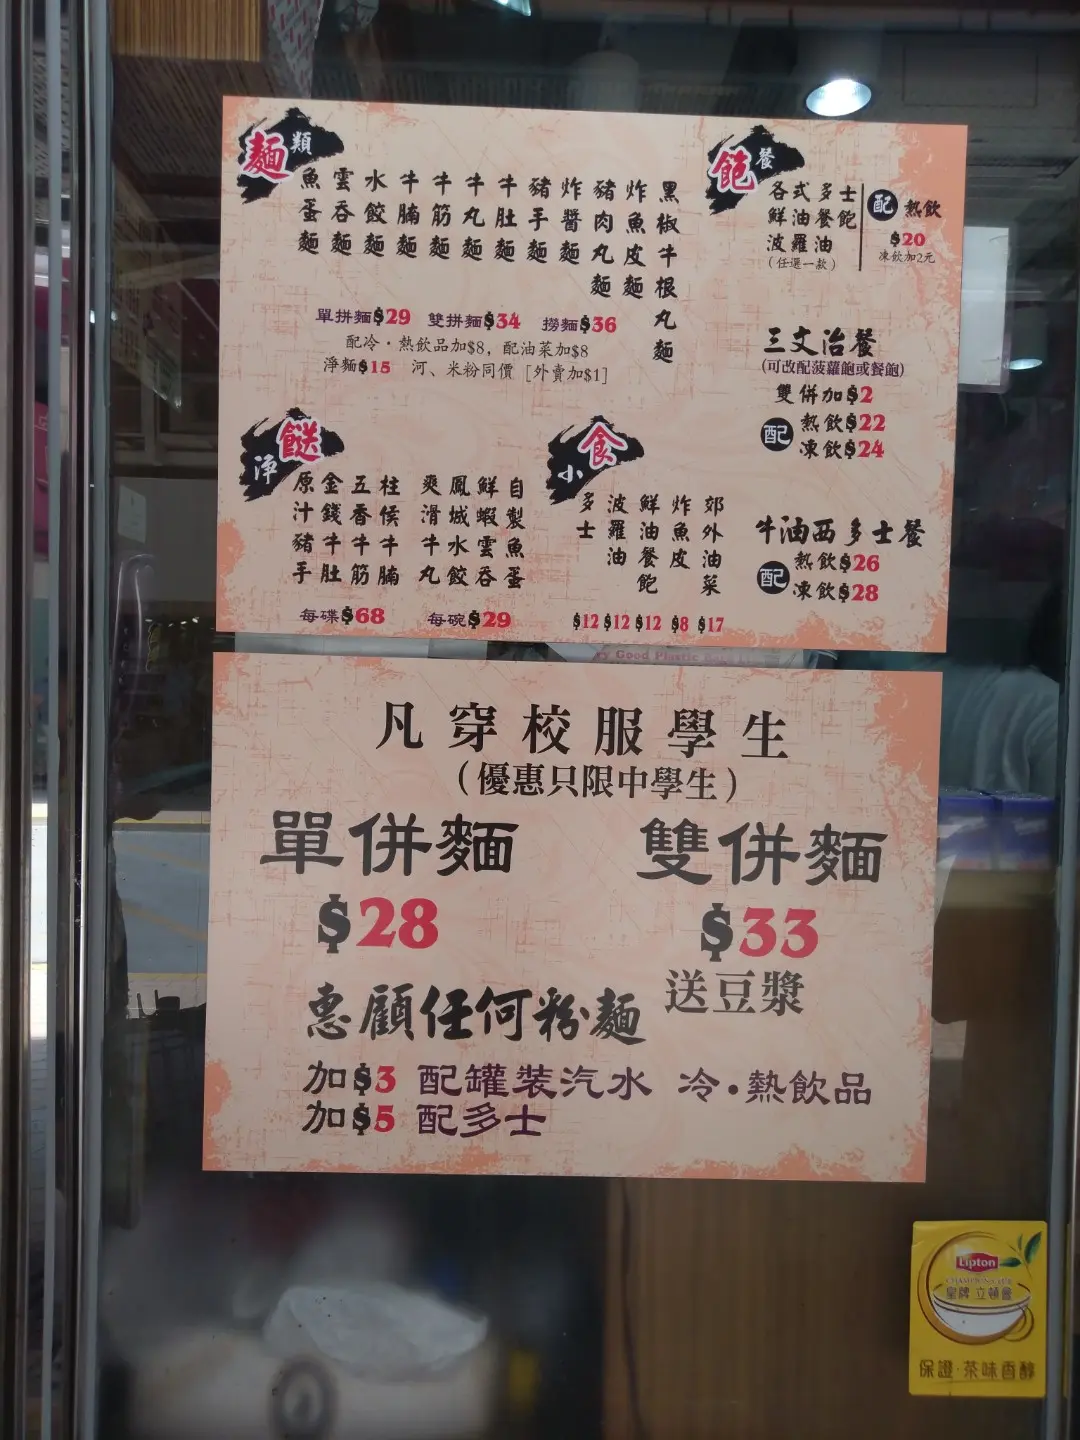 麵類
魚蛋麵
雲吞麵
水餃麵
牛腩麵
牛筋麵
牛丸麵
牛肚麵
豬手麵
炸醬麵
豬肉丸麵
炸魚皮麵
黑椒牛根丸麵
單拼麵$29 雙拼麵$34 撈麵$36
配冷·熱飲品加$8，配油菜加$8
淨麵$15 河、米粉同價［外賣加$1］
飽餐
各式多士
鮮油餐飽
波羅油
(任選一款)
配 熱飲
$20
凍飲加2元
三文治餐
(可改配菠蘿飽或餐飽)
雙併加$2
配 熱飲$22
凍飲$24
牛油西多士餐
配 熱飲$26
凍飲$28
淨餸
原汁豬手
金錢牛肚
五香牛筋
柱侯牛腩
爽滑牛丸
鳳城水餃
鮮蝦雲吞
自製魚蛋
每碟$68 每碗$29
小食
多士
波羅油
鮮油餐飽
炸魚皮
郊外油菜
$12 $12 $12 $8 $17
Good Plastic
凡穿校服學生
(優惠只限中學生)
單併麵 雙併麵
$28 $33
送豆漿
惠顧任何粉麵
加$3 配罐裝汽水 冷·熱飲品
加$5 配多士
Lipton
CHAMPIONS CUP
皇牌 立頓會
保證·茶味香醇